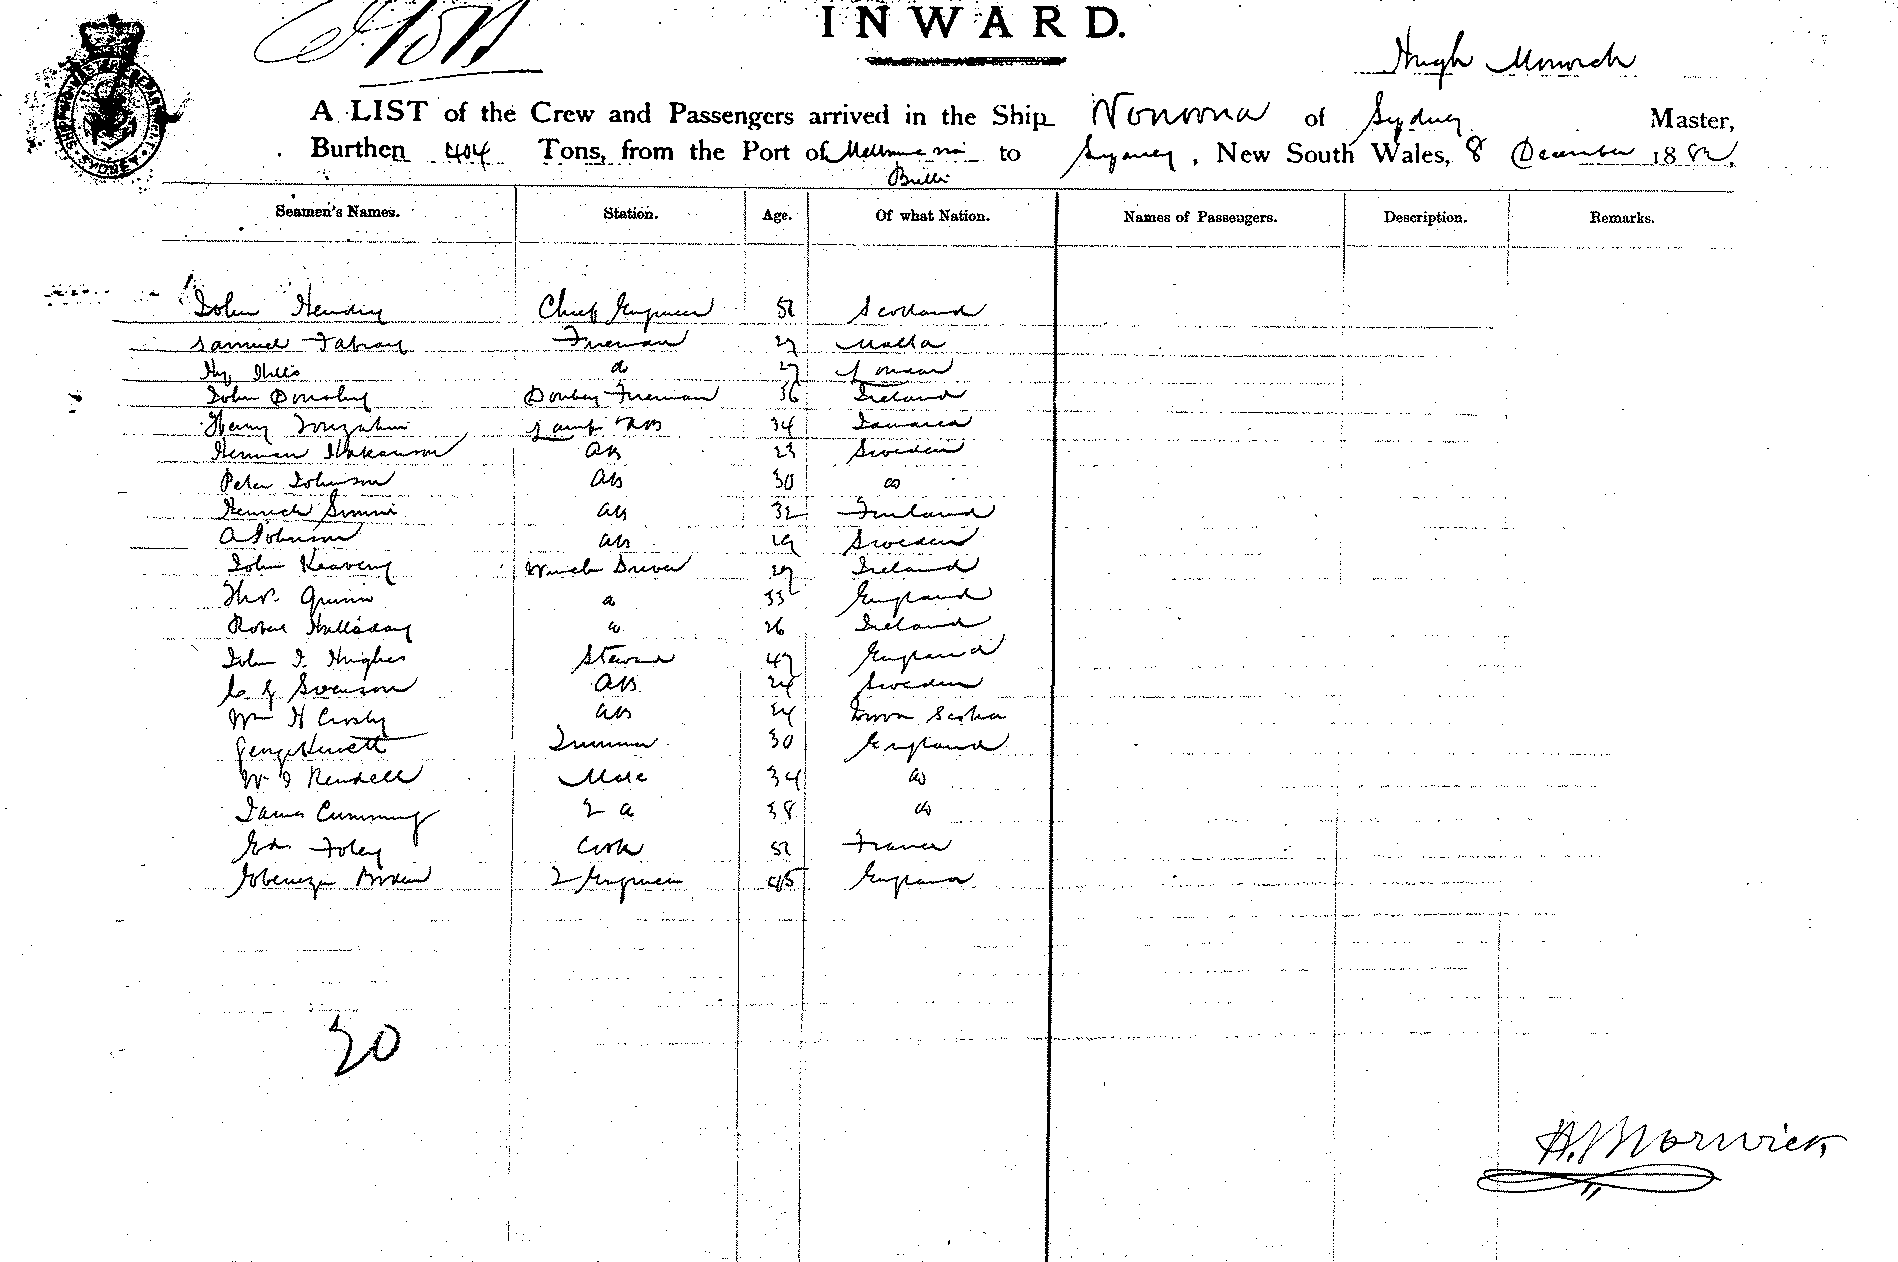 INWARD.
Hugh Morwick
A LIST of the Crew and Passengers arrived in the Ship Nonoona of Sydney Master,
Burthen 404 Tons, from the Port of Melbourne via to Sydney, New South Wales, 8 December 1882.
Bulli
Seamen's Names. Station. Age. Of what Nation. Names of Passengers. Description. Remarks.
John Hendry Chief Engineer Scotland
Samuel Fireman 27 Malta
Hy Hills do 27 London
John Donkey Fireman 36 Ireland
Henry Lamp 34 Jamaica
Herman Hakanson AB 23 Sweden
Peter Johnson AB 30 do
Henrich AB 32 Finland
A Johnson AB 29 Sweden
John Keaveny Winch Driver 29 Ireland
Thos. Quinn do 33 England
Robert Halladay do 26 Ireland
John I. Hughes Steward 47 England
C J Svenson AB 24 Sweden
Wm H Crosby AB 24 Nova Scotia
George Hewett Trimmer 30 England
W J Rendell Mate 34 do
James Cumming 2 do 38 do
Ed. Foley Cook France
Ebenezer Brown 2 Engineer 45 England
20
H. Morwick